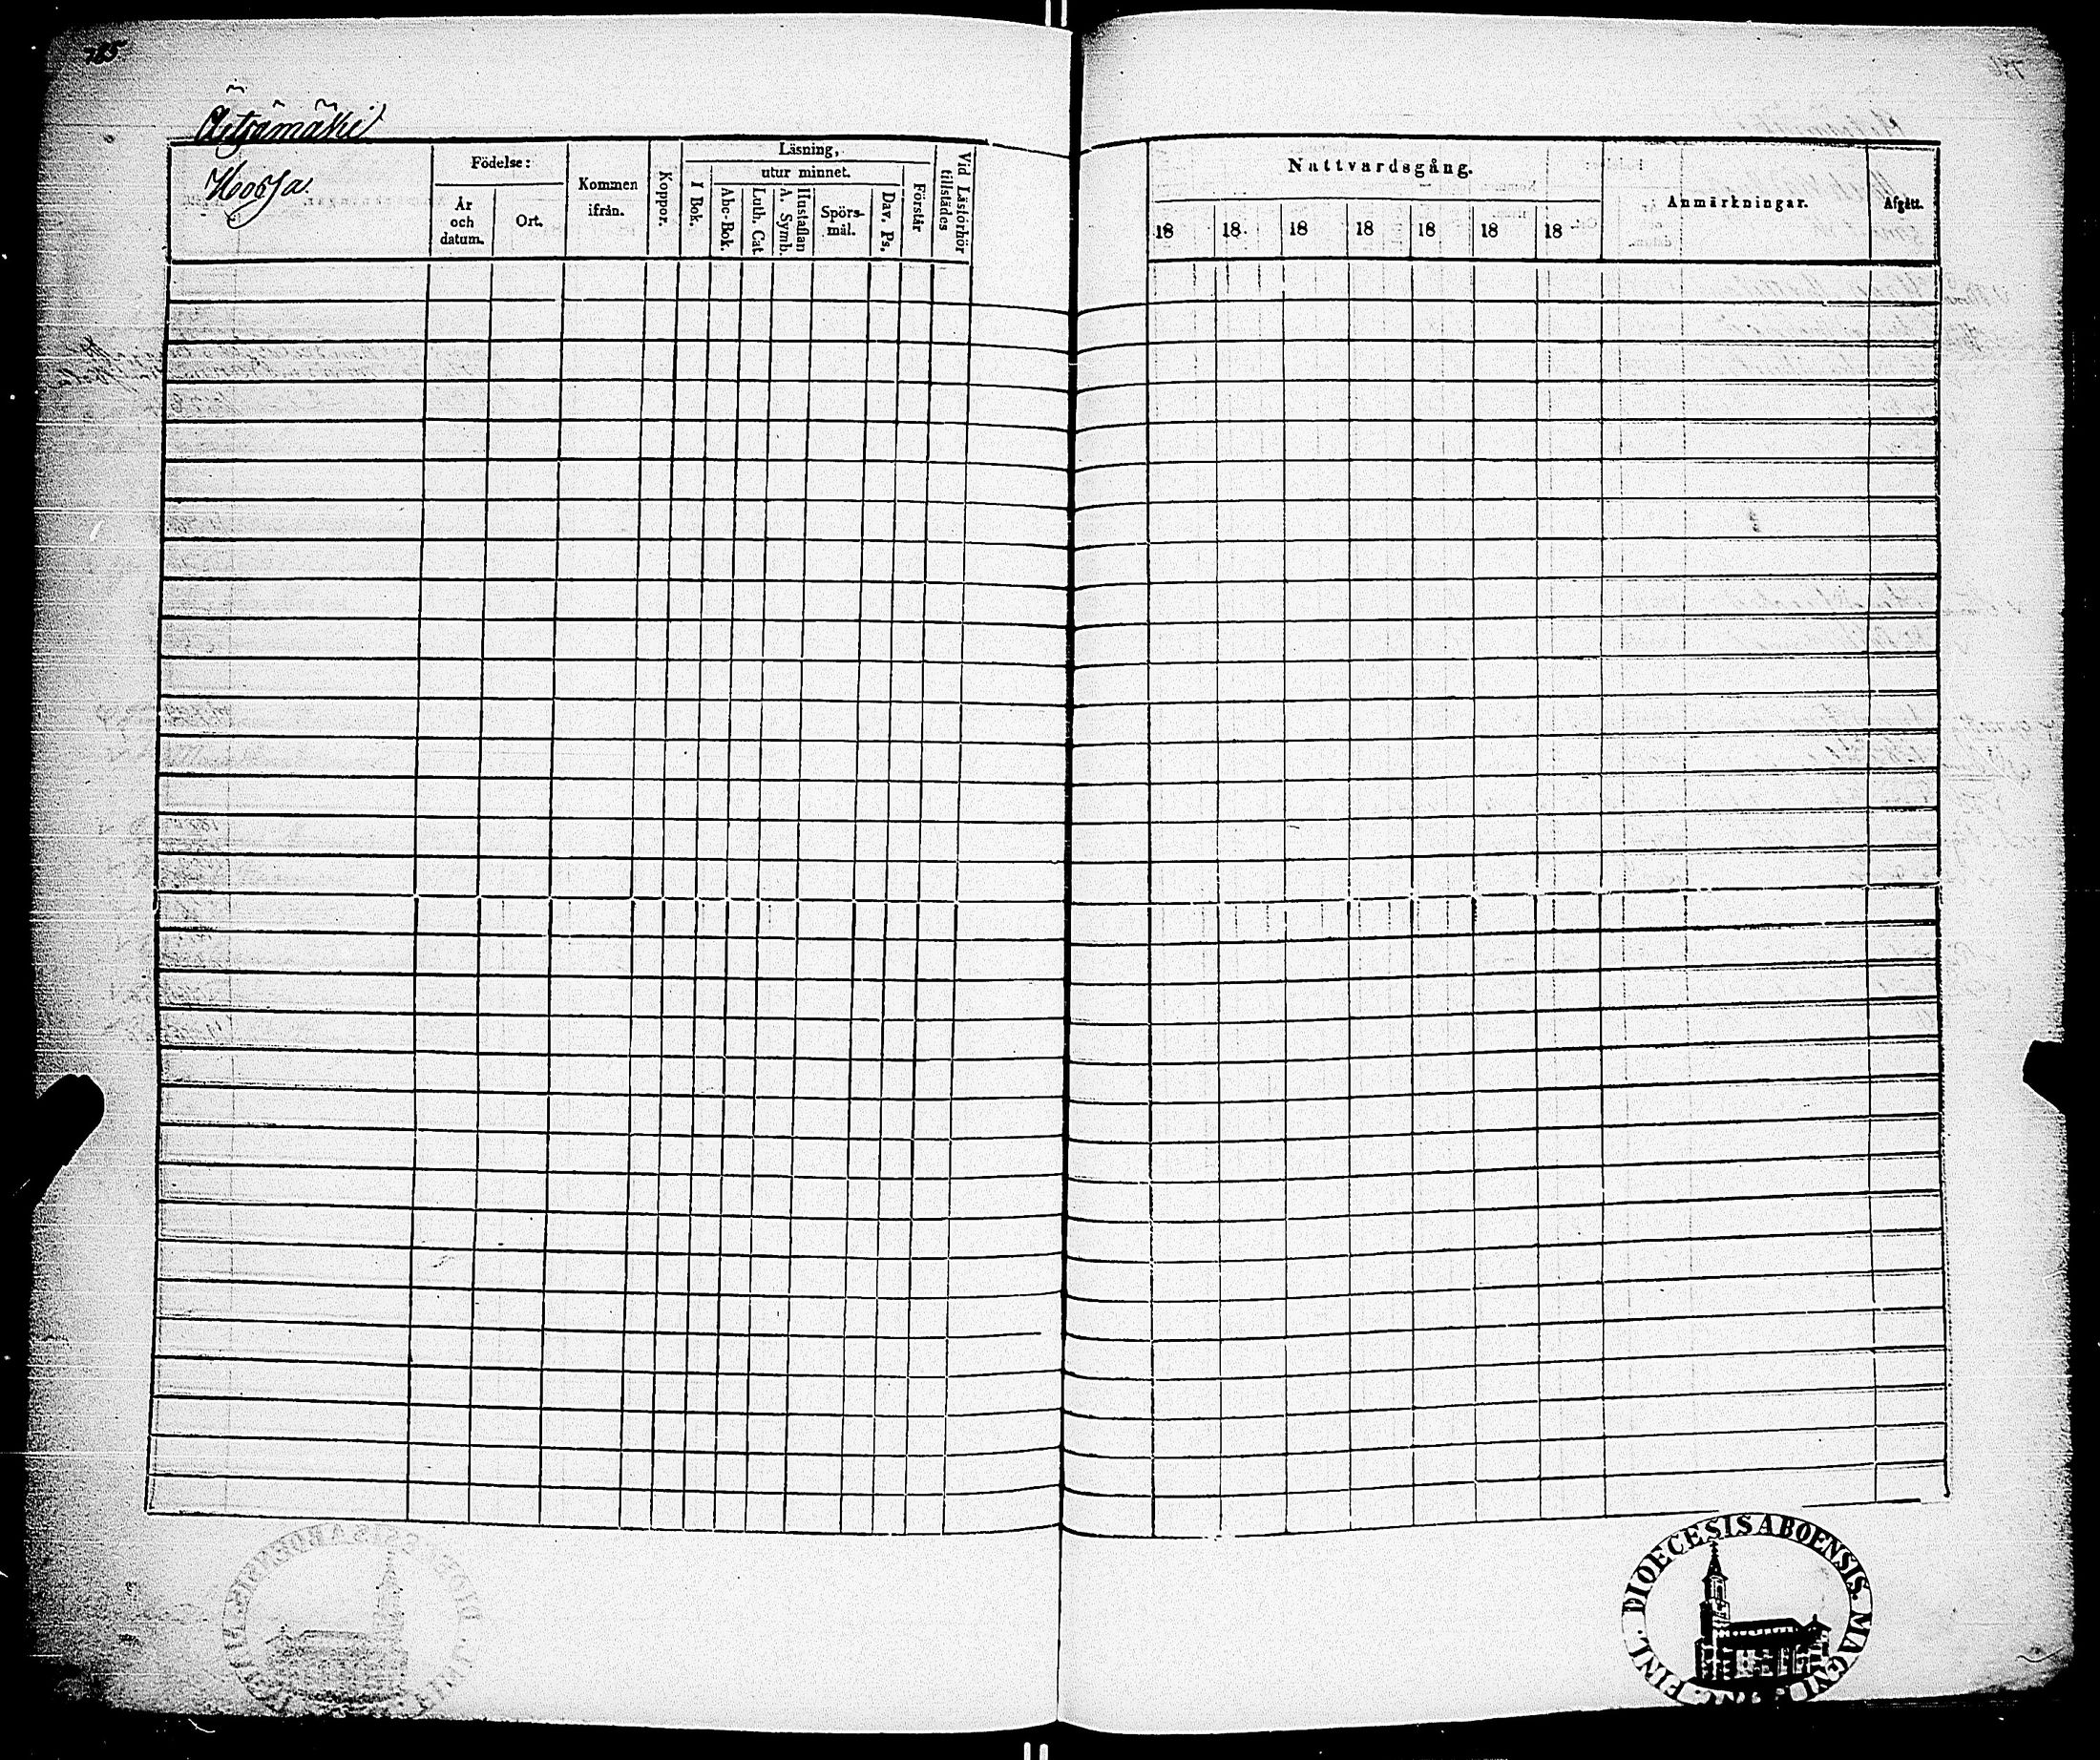 785
Äetsämäki
Koorja.
Födelse:
År
och
datum.
Ort.
Kommen
ifrån.
Koppor.
Läsning,
utur minnet.
I Bok.
Abc-Bok.
Luth. Cat
Hustaflan
A. Symb.
Spörs-
mål.
Dav. Ps.
Förstår
Vid Läsförhör
tillstädes
Nattvardsgång.
18 18 18 18 18 18 18
Anmärkningar.
Afgått.
DIOECESIS ABOENSIS. MAGNI